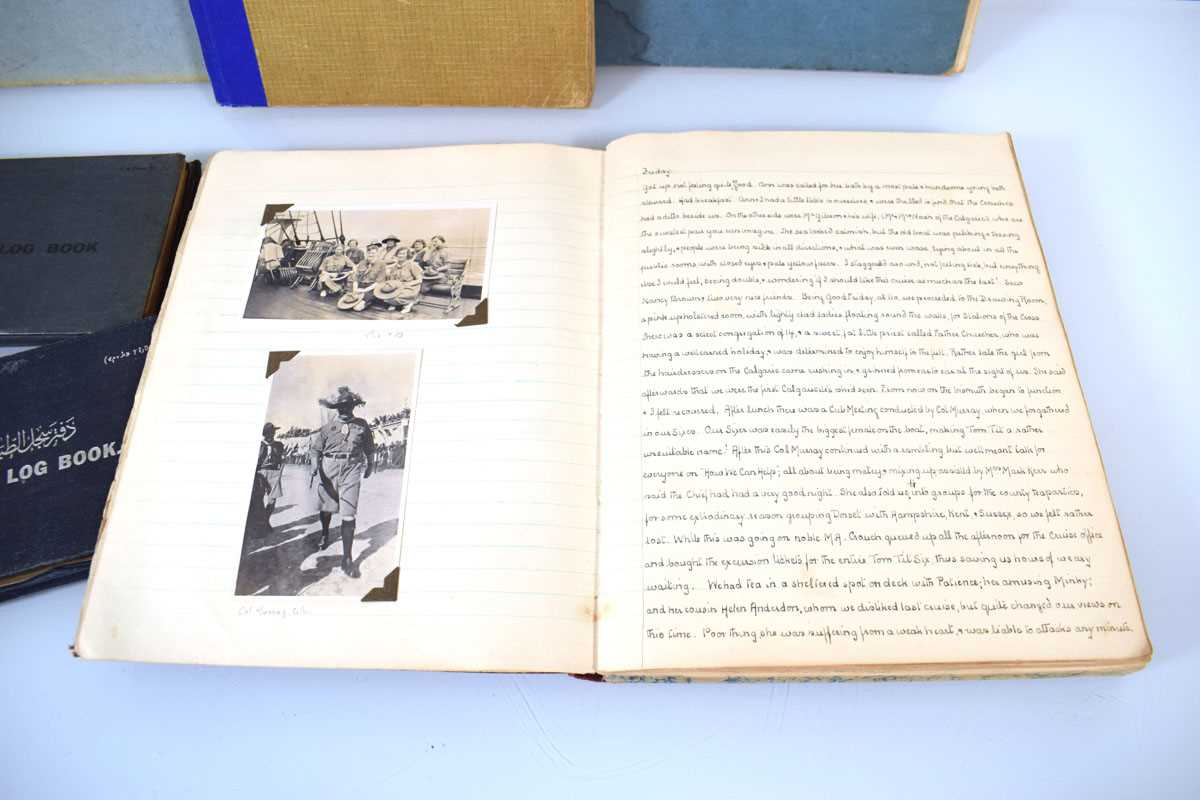 LOG BOOK
دفتر سجل الط
LOG BOOK.
Col Murray
Friday.
Got up not feeling quite good. Ann was called for her bath by a most pale & handsome young bath
steward. Had breakfast. Ann & I had a little table to ourselves & were thrilled to find that the Crouches
had a ditto beside us. On the other side were Mr Gibson & his wife, (Mr & Mrs Nash of the Calgaric) who are
the sweetest pair you can imagine. The sea looked calmish, but the old boat was pitching & tossing
slightly, & people were being sick in all directions, & what was even worse lying about in all the
public rooms with closed eyes & pale yellow faces. I staggered around, not feeling sick, but everything
else I could feel, seeing double, & wondering if I should like this cruise as much as the last! Saw
Nancy Brown & two very nice friends. Being Good Friday, at 10, we proceeded to the Drawing Room,
a pink upholstered room, with lightly clad ladies floating round the walls, for Stations of the Cross.
There was a select congregation of 14, & a sweet, fat little priest called Father Churcher, who was
having a well earned holiday, & was determined to enjoy himself to the full. Rather late the girl from
the hairdressers on the Calgaric came rushing in & grinned from ear to ear at the sight of us. She said
afterwards that we were the first Calgaricites she'd seen. From now on the bismuth began to function
& I felt recovered. After lunch there was a Cub Meeting conducted by Col Murray when we forgathered
in our Sixes. Our Sixer was easily the biggest female on the boat, making Tom Tit a rather
unsuitable name! After this Col Murray continued with a rambling but well meant talk for
everyone on "How We Can Help"; all about being matey & mixing up, assailed by Mrs Mark Kerr who
said the Chief had had a very good night. She also told us to into groups for the county teaparties,
for some extrodinary reason grouping Dorset with Hampshire, Kent & Sussex, so we felt rather
lost. While this was going on noble M.A. Crouch queued up all the afternoon for the Cruise office
and bought the excursion tickets for the entire Tom Tit Six, thus saving us hours of weary
waiting. We had tea in a sheltered spot on deck with Patience; her amusing Minky;
and her cousin Helen Anderdon, whom we disliked last cruise, but quite changed our views on
this time. Poor thing, she was suffering from a weak heart, & was liable to attacks any minute.